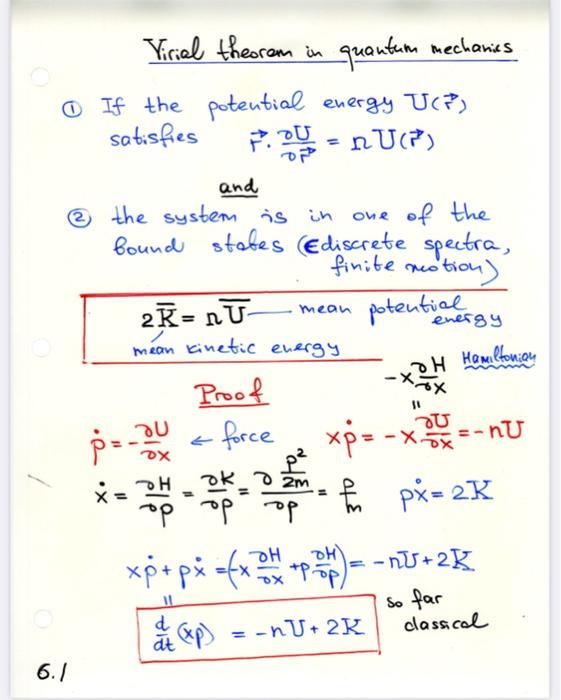 Virial theorem in quantum mechanics
① If the potential energy U(r⃗)
satisfies r⃗·∂U/∂r⃗ = nU(r⃗)
and
② the system is in one of the
bound states (∈discrete spectra,
finite motion)
2K̅ = nU̅ — mean potential
energy
mean kinetic energy
-x ∂H/∂x Hamiltonian
Proof
ṗ = -∂U/∂x ← force xṗ = -x ∂U/∂x = -nU
ẋ = ∂H/∂p = ∂K/∂p = ∂ p²/2m / ∂p = p/m pẋ = 2K
xṗ + pẋ = (-x ∂H/∂x + p ∂H/∂p) = -nU + 2K
d/dt (xp) = -nU + 2K so far
classical
6.1